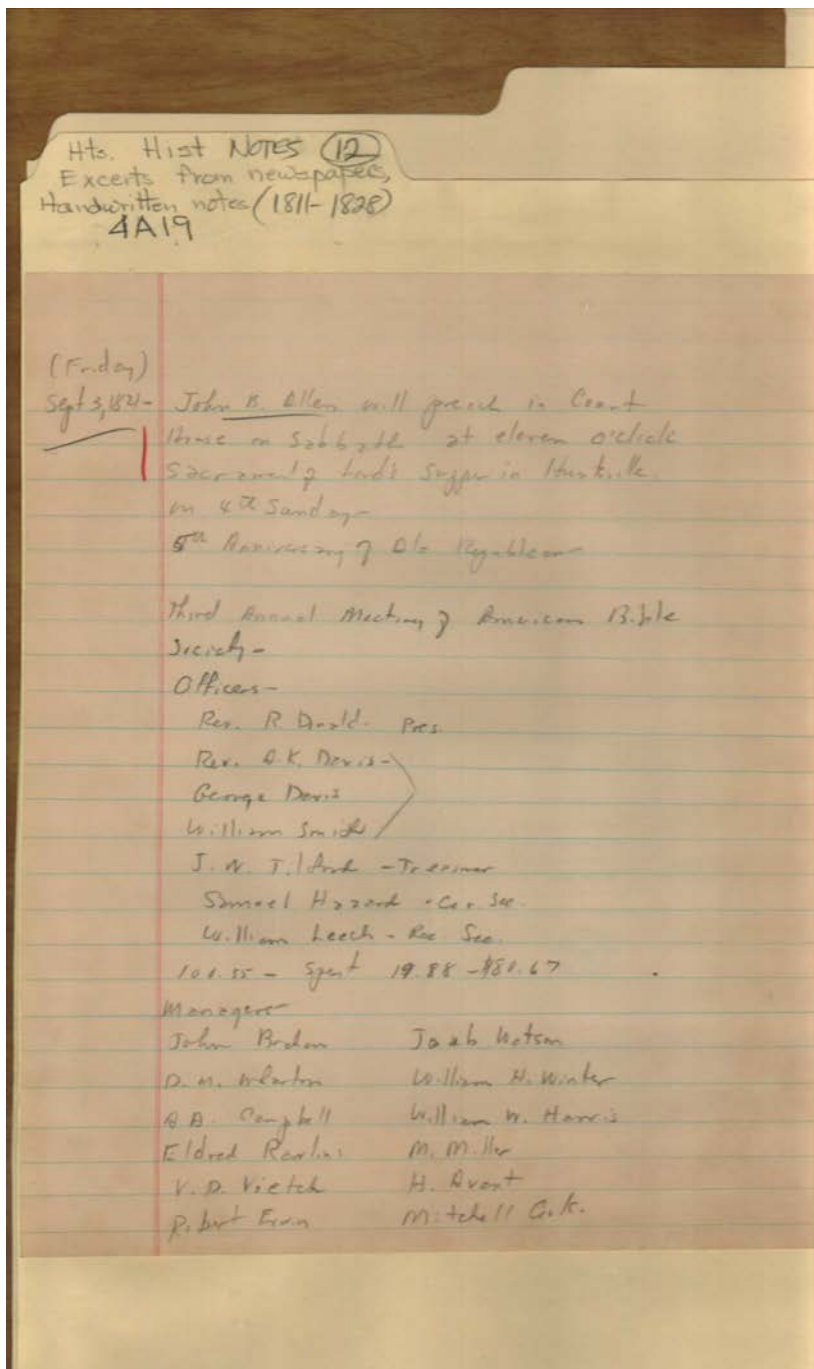 Hts. Hist NOTES (12)
Excerts from newspapers,
Handwritten notes (1811-1828)
4A19
(Friday)
Sept 3, 1821- John B. Allen will preach in Court
House on Sabbath at eleven o'clock
Sacrament of Lord's Supper in Huntsville
on 4th Sunday-
5th Anniversary of Ala Republican
Third Annual Meeting of American Bible
Society-
Officers-
Rev. R. Donald- Pres
Rev. A.K. Davis-
George Davis
William Smith
J. W. - Treasurer
Samuel Hazard - Cor Sec.
William Leech - Rec Sec.
100.55 - Spent 19.88 - $80.67
Managers
John Jacob Watson
D. M. William H. Winter
A A. Campbell William W. Harris
Eldred Rawlins M. Miller
V. D. Vietch H. Avent
Robert Mitchell